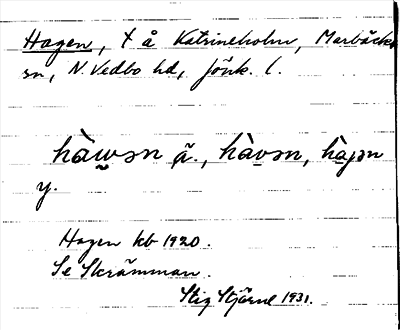 Hagen, † å Katrineholm, Marbäcks
sn, N. Vedbo hd, Jönk. l.
hàwən ä., hàvən, hàgən
y.
Hagen kb 1920.
Se Skrämman.
Stig Stjärne 1931.